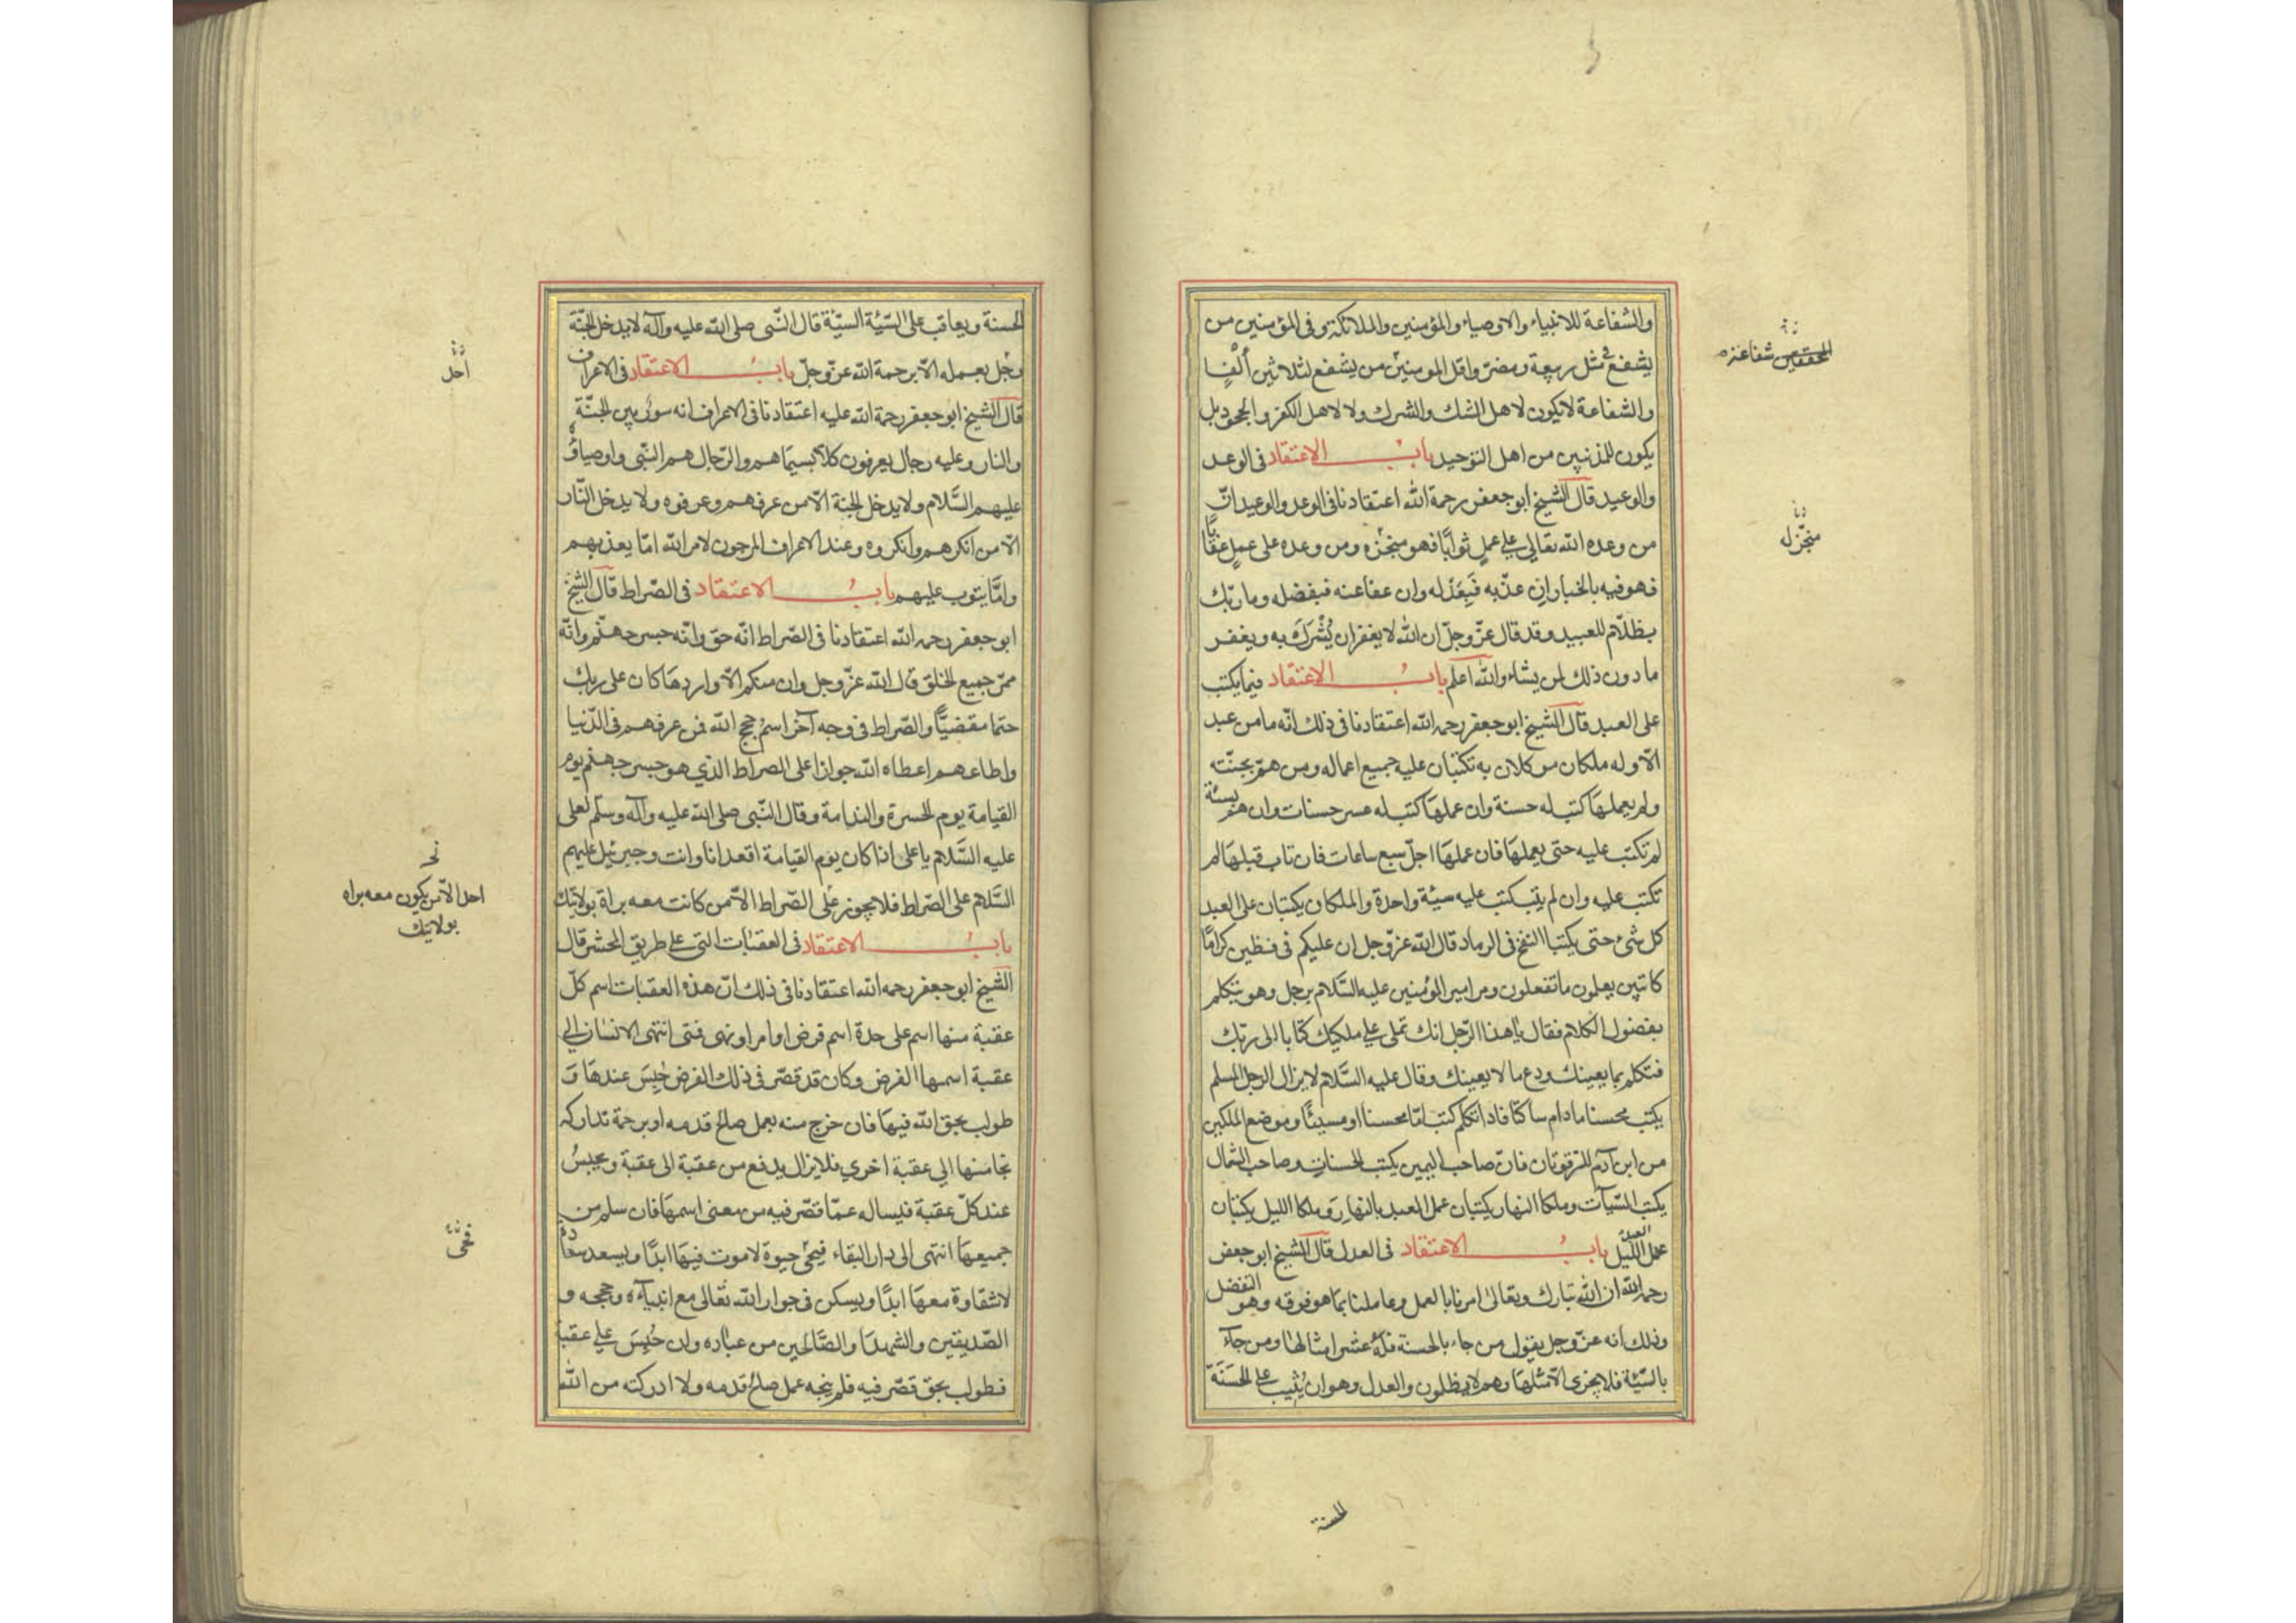 والشفاعة للانبياء والاوصياء والمؤمنين والملائكة وفى المؤمنين من
يشفع فى مثل ربيعة ومضر واقل المومنين من يشفع لثلاثين ألفا
والشفاعة لا يكون لاهل الشك والشرك ولا لاهل الكفر والجحود بل
يكون للمذنبين من اهل التوحيد باب الاعتقاد فى الوعد
والوعيد قال الشيخ ابو جعفر رحمة الله اعتقادنا فى الوعد والوعيد انّ
من وعده الله تعالي علي عمل ثوابًا فهو منجزه ومن وعده على عمل عقابًا
فهو فيه بالخيار ان عذّبه فبعدله وان عفا عنه فبفضله وما ربّك
بظلّام للعبيد وقد قال عزّ وجلّ ان الله لا يغفر ان يُشْرَكَ به ويغفر
ما دون ذلك لمن يشاء والله اعلم باب الاعتقاد فيما يكتب
على العبد قال الشيخ ابو جعفر رحمه الله اعتقادنا فى ذلك انّه ما من عبد
الّا وله ملكان موكلان به تكتبان عليه جميع اعماله ومن همّ بحسنة
ولم يعملها كتب له حسنة وان عملها كتب له عسر حسنات وان همّ بسيئة
لم تكتب عليه حتى يعملها فان عملها اجلّ سبع ساعات فان تاب قبلها لم
تكتب عليه وان لم يتب كتب عليه سيئة واحدة والملكان يكتبان على العبد
كل شئ حتى يكتبا النفخ فى الرماد قال الله عزّ وجل ان عليكم لحافظين كرامًا
كاتبين يعلمون ما تفعلون ومر امير المؤمنين عليه السَّلام برجل وهو يتكلم
بفضول الكلام فقال يا هذا الرّجل انك تملى علي ملكيك كتابا الى ربّك
فتكلم بما يعينك ودع ما لا يعينك وقال عليه السَّلام لا يزال الرجل المسلم
يكتب محسنا ما دام ساكتًا فاذا تكلم كتب امّا محسنا او مسيئًا وموضع الملكين
من ابن آدم الترقوتان فانّ صاحب اليمين يكتب الحسنات وصاحب الشمال
يكتب السّيآت وملكا النهار يكتبان عمل العبد بالنهار وملكا الليل يكتبان
عمل العبد الليل باب الاعتقاد فى العدل قال الشيخ ابو جعفر
رحمه الله ان الله تبارك وتعالى امرنا بالعمل وعاملنا بما هو فوقه وهو التفضل
وذلك انه عزّ وجل يقول من جاء بالحسنة فله عشر امثالها ومن جآء
بالسّيّة فلا يجزى الّا مثلها وهم لا يظلمون والعدل وهو ان يُثيب على الحَسَنَة
الحسنة
منجّز له
الحسنة ويعاقب على السّيّئة السيّئة قال النّبى صلى الله عليه وآله لا يدخل الجنّة
رجُل بعمله الّا برحمة الله عزّ وجلّ باب الاعتقاد فى الاعراف
قال الشيخ ابو جعفر رحمة الله عليه اعتقادنا فى الاعراف انه سور بين الجنّة
والنار وعليه رجال يعرفون كلّا بسيماهم والرّجال هم النّبى واوصياؤه
عليهم السَّلام ولا يدخل الجنة الّا من عرفهم وعرفوه ولا يدخل النّار
الّا من انكرهم وانكروه وعند الاعراف المرجون لامر الله امّا يعذبهم
وامّا يتوب عليهم باب الاعتقاد فى الصّراط قال الشيخ
ابو جعفر رحمه الله اعتقادنا فى الصّراط انّه حق وانّه جسر جهنّم وانّه
ممرّ جميع الخلق قال الله عزّ وجل وان منكم الّا واردها كان على ربك
حتما مقضيًّا والصّراط فى وجه آخر اسم حجج الله فمن عرفهم فى الدّنيا
واطاعهم اعطاه الله جوازا على الصراط الذي هو جسر جهنّم يوم
القيامة يوم الحسرة والندامة وقال النّبى صلى الله عليه وآله وسلّم لعلى
عليه السَّلام يا على اذا كان يوم القيامة اقعد انا وانت وجبرئيل عليهم
السَّلام على الصّراط فلا يجوز على الصّراط الّا من كانت معه براة بولايتك
باب الاعتقاد فى العقبات التى على طريق المحشر قال
الشيخ ابو جعفر رحمه الله اعتقادنا فى ذلك انّ هذه العقبات اسم كلّ
عقبة منها اسم على حدة اسم فرض او امر او نهى فمتى انتهى الانسان الي
عقبة اسمها الفرض وكان قد قصّر فى ذلك الفرض حُبِسَ عندها و
طولب بحق الله فيها فان خرج منه بعمل صالح قدمه او برحمة تداركه
نجا منها الي عقبة اخري فلا يزال يدفع من عقبة الى عقبة ويحبسُ
عند كلّ عقبة فيساله عمّا قصّر فيه من معنى اسمها فان سلم من
جميعها انتهى الى دار البقاء فيحيٰ حيوة لا موت فيها ابدًا ويسعد سعادة
لا شقاوة معها ابدًا ويسكن فى جوار الله تعالى مع انبيآءه وحججه و
الصّديقين والشهدا والصّالحين من عباده وان حُبِسَ علي عقبة
فطولب بحق قصّر فيه فلم ينجه عمل صالح قدمه ولا ادركته من الله
احل
احد الّا من يكون معه براه
بولايتك